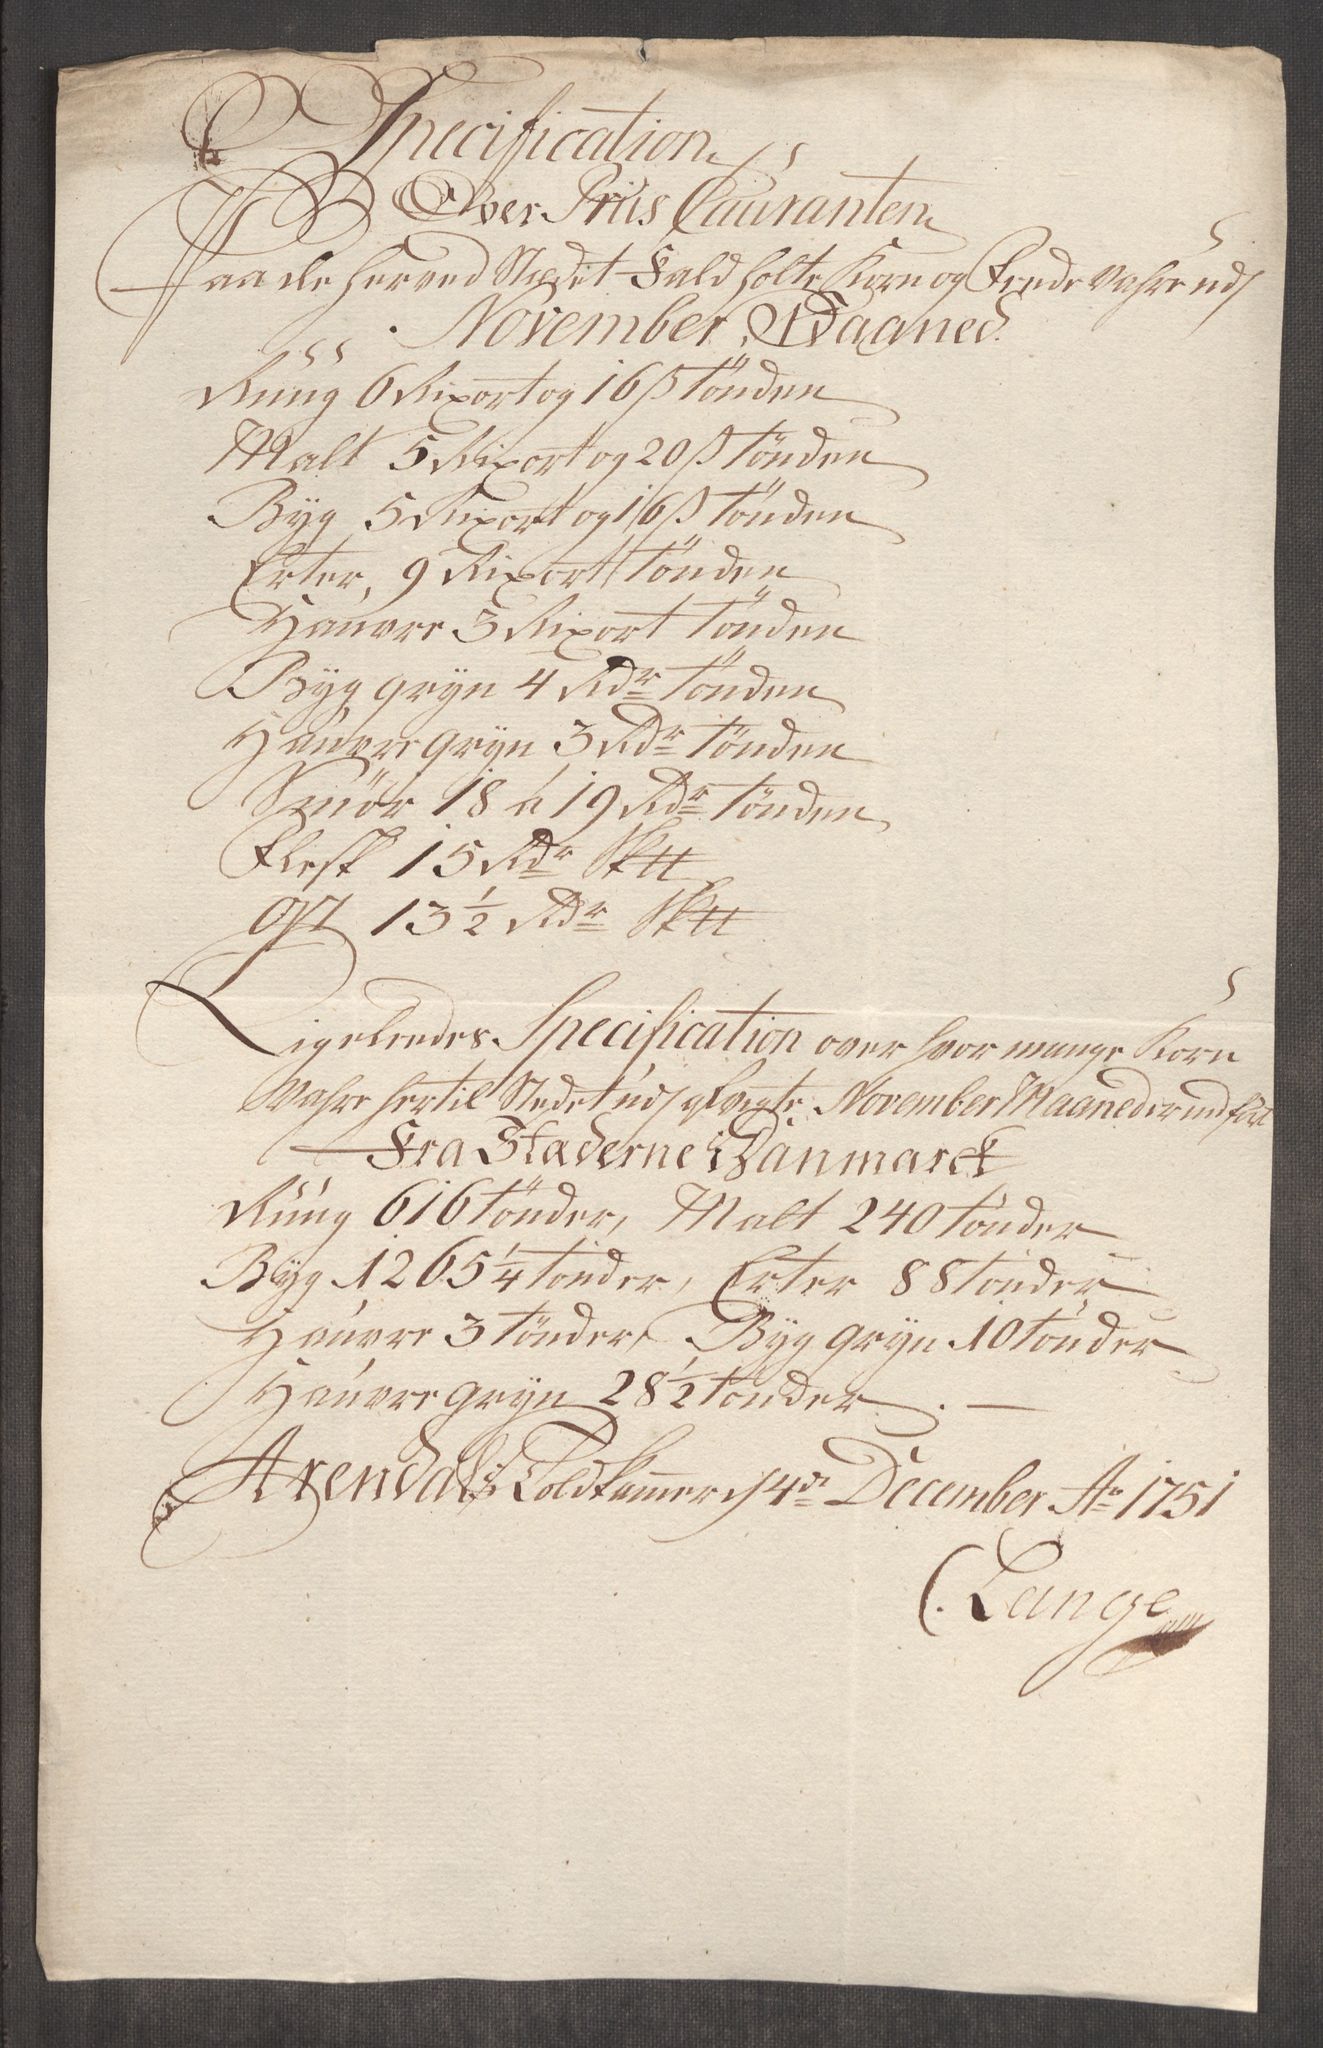 Specification
Over Priis Cauranten
Paa de herved Stædet Faldholte Korn og Fede Vahre udj
November Maaned.
Rüug 6 Rixort og 16 ß Tönden
Malt 5 Rixort og 20 ß Tönden
Byg 5 Rixort og 16 ß Tönden
Erter, 9 Rixort Tönden
Hauvre 3 Rixort Tönden
Byg gryn 4 Rdr Tönden
Hauvre gryn 3 Rdr Tönden
Smör 18 á 19 Rdr Tönden
Flesk 15 Rdr Sk℔
Ost 13½ Rdr Sk℔
Ligeleedes Specification over hvor mange Korn
Vahre hertil Stedet udj Novembr Maaned er indfört
Fra Stæderne i Danmarck
Rüug 616 Tönder, Malt 240 Tönder
Byg 1265¼ Tönder, Erter 88 Tönder
Hauvre 3 Tönder, Byg gryn 10 Tönder
Hauvre gryn 28½ Tönder. —
Arendals Toldkammer d 4de December Ao 1751
C. Lange